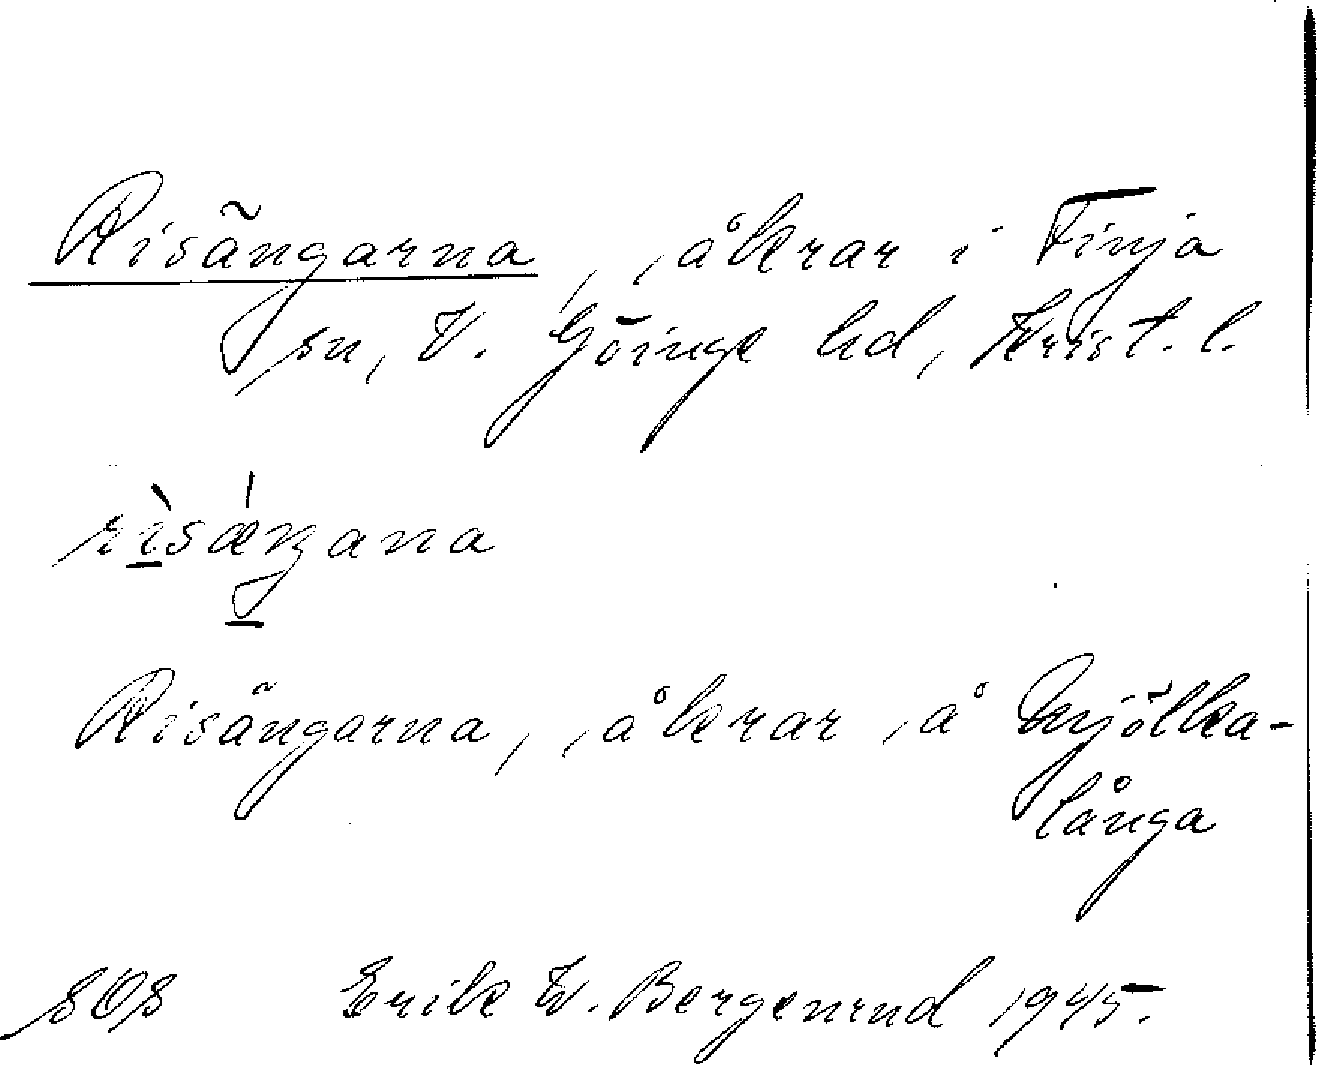 Risängarna, åkrar i Finja
sn, V. Göinge hd, Krist. l.
rìsǽŋana
Risängarna, åkrar å Mjölka-
långa
SOS Erik W. Bergenrud 1945.